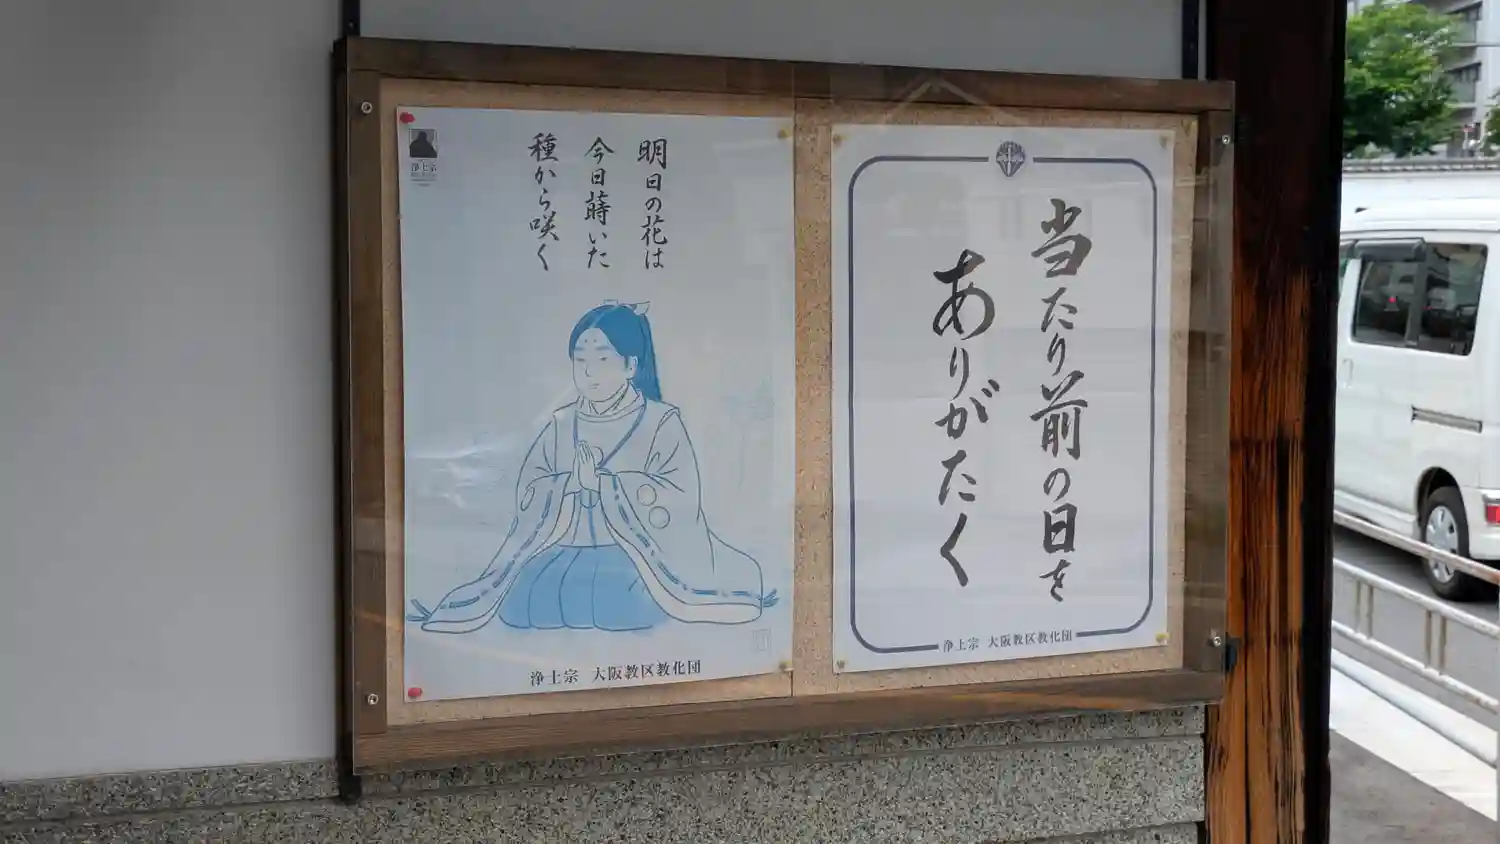 明日の花は
今日蒔いた
種から咲く
浄土宗
浄土宗 大阪教区教化団
当たり前の日を
ありがたく
浄土宗 大阪教区教化団